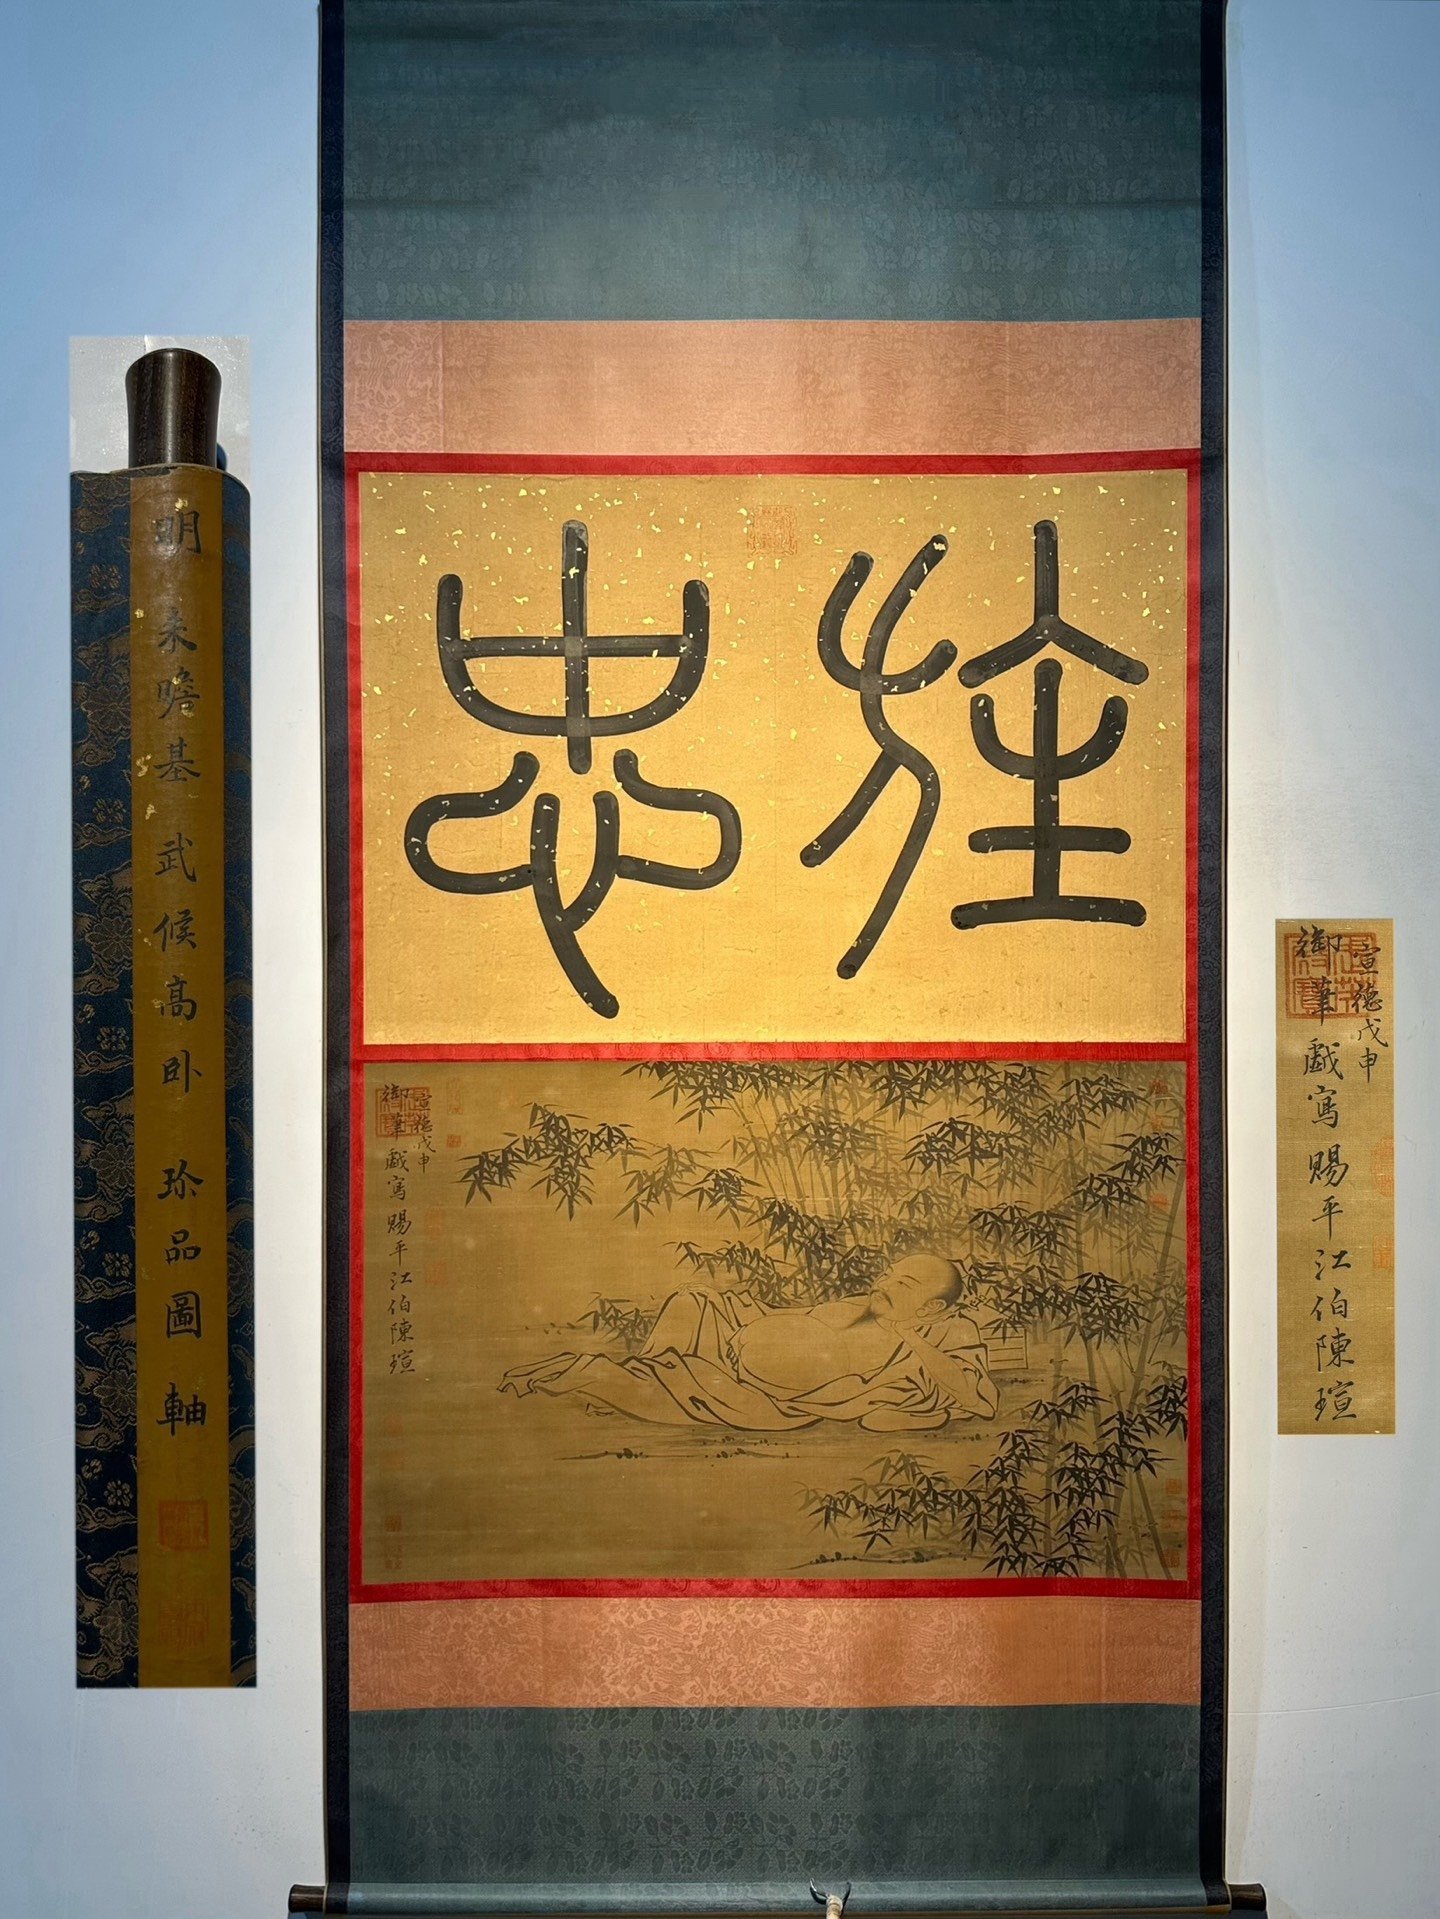 旌忠
宣德戊申
御筆戲寫賜平江伯陳瑄
明朱瞻基武候高卧珍品圖軸
宣德戊申
御筆戲寫賜平江伯陳瑄